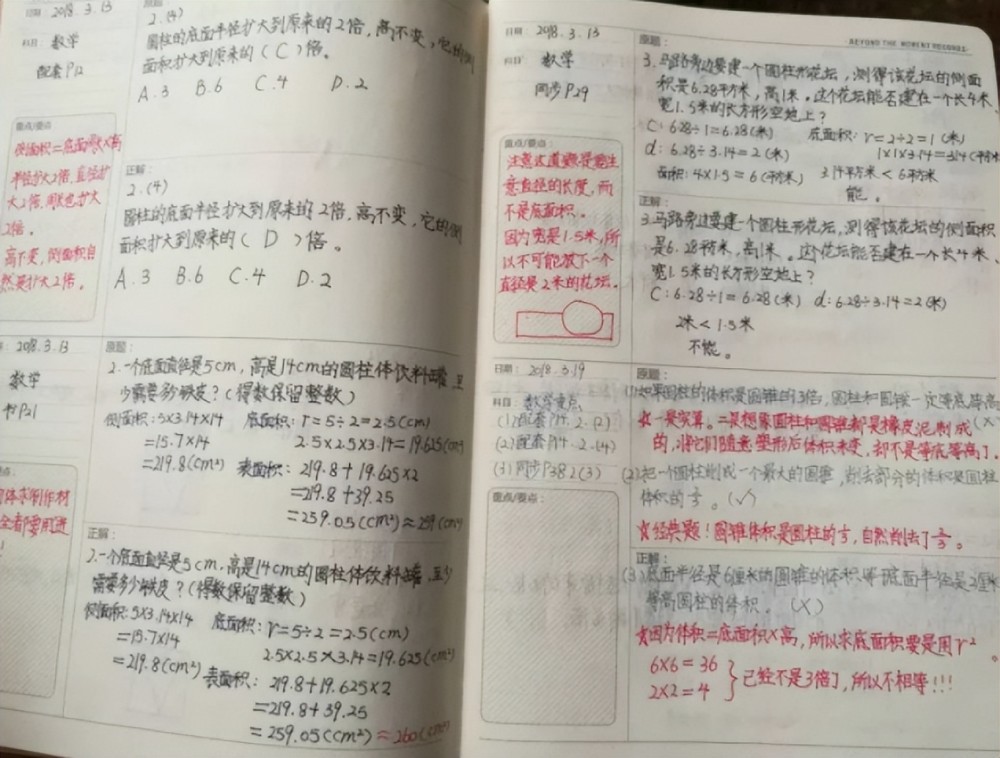 日期：2018.3.13
科目：数学
配套P12
原题：
2.(4)
圆柱的底面半径扩大到原来的2倍，高不变，它的侧
面积扩大到原来的（C）倍。
A.3 B.6 C.4 D.2
重点/要点
侧面积=底面周长×高
半径扩大2倍，直径扩
大2倍，周长也扩大
2倍。
高不变，侧面积自
然是扩大2倍。
正解：
2.(4)
圆柱的底面半径扩大到原来的2倍，高不变，它的侧
面积扩大到原来的（D）倍。
A.3 B.6 C.4 D.2
2018.3.13
数学
书P21
原题：
2.一个底面直径是5cm，高是14cm的圆柱体饮料罐，至
少需要多少铁皮？（得数保留整数）
侧面积：5×3.14×14 底面积：r=5÷2=2.5(cm)
=15.7×14 2.5×2.5×3.14=19.625(cm²)
=219.8(cm²) 表面积：219.8+19.625×2
=219.8+39.25
=259.05(cm²)≈259(cm²)
体求制作材
全都要用进
！
正解：
2.一个底面直径是5cm，高是14cm的圆柱体饮料罐，至少
需要多少铁皮？（得数保留整数）
侧面积：5×3.14×14 底面积：r=5÷2=2.5(cm)
=15.7×14 2.5×2.5×3.14=19.625(cm²)
=219.8(cm²) 表面积：219.8+19.625×2
=219.8+39.25
=259.05(cm²)≈260(cm²)
BEYOND THE MOMENT RECORDS
日期：2018.3.13
科目：数学
同步P29
原题：
3.马路旁边要建一个圆柱形花坛，测得该花坛的侧面
积是6.28平方米，高1米。这个花坛能否建在一个长4米、
宽1.5米的长方形空地上？
C：6.28÷1=6.28(米) 底面积：r=2÷2=1(米)
d：6.28÷3.14=2(米) 1×1×3.14=3.14(平方米)
面积：4×1.5=6(平方米) 3.14平方米<6平方米
能。
重点/要点：
注意这道题是要注
意直径的长度，而
不是底面积。
因为宽是1.5米，所
以不可能放下一个
直径是2米的花坛。
正解：
3.马路旁边要建一个圆柱形花坛，测得该花坛的侧面积
是6.28平方米，高1米。这个花坛能否建在一个长4米、
宽1.5米的长方形空地上？
C：6.28÷1=6.28(米) d：6.28÷3.14=2(米)
2米<1.5米
不能。
日期：2018.3.19
科目：数学重点
(1)配套P14.2-(2)
(2)配套P14-2-(4)
(3)同步P38 2(3)
重点/要点：
原题：
(1)如果圆柱的体积是圆锥的3倍，圆柱和圆锥一定等底等高
(×)
☆一是实算。二是想象圆柱和圆锥都是橡皮泥制成
的，将它们随意塑形后体积未变，却不是等底等高了。
(2)把一个圆柱削成一个最大的圆锥，削去部分的体积是圆柱
体积的⅔。(√)
☆经典题！圆锥体积是圆柱的⅓，自然削去了⅔。
正解：
(3)底面半径是6厘米的圆锥的体积等于底面半径是2厘米
等高圆柱的体积。(×)
☆因为体积=底面积×高，所以求底面积要是用r²。
6×6=36
2×2=4
已经不是3倍了，所以不相等!!!